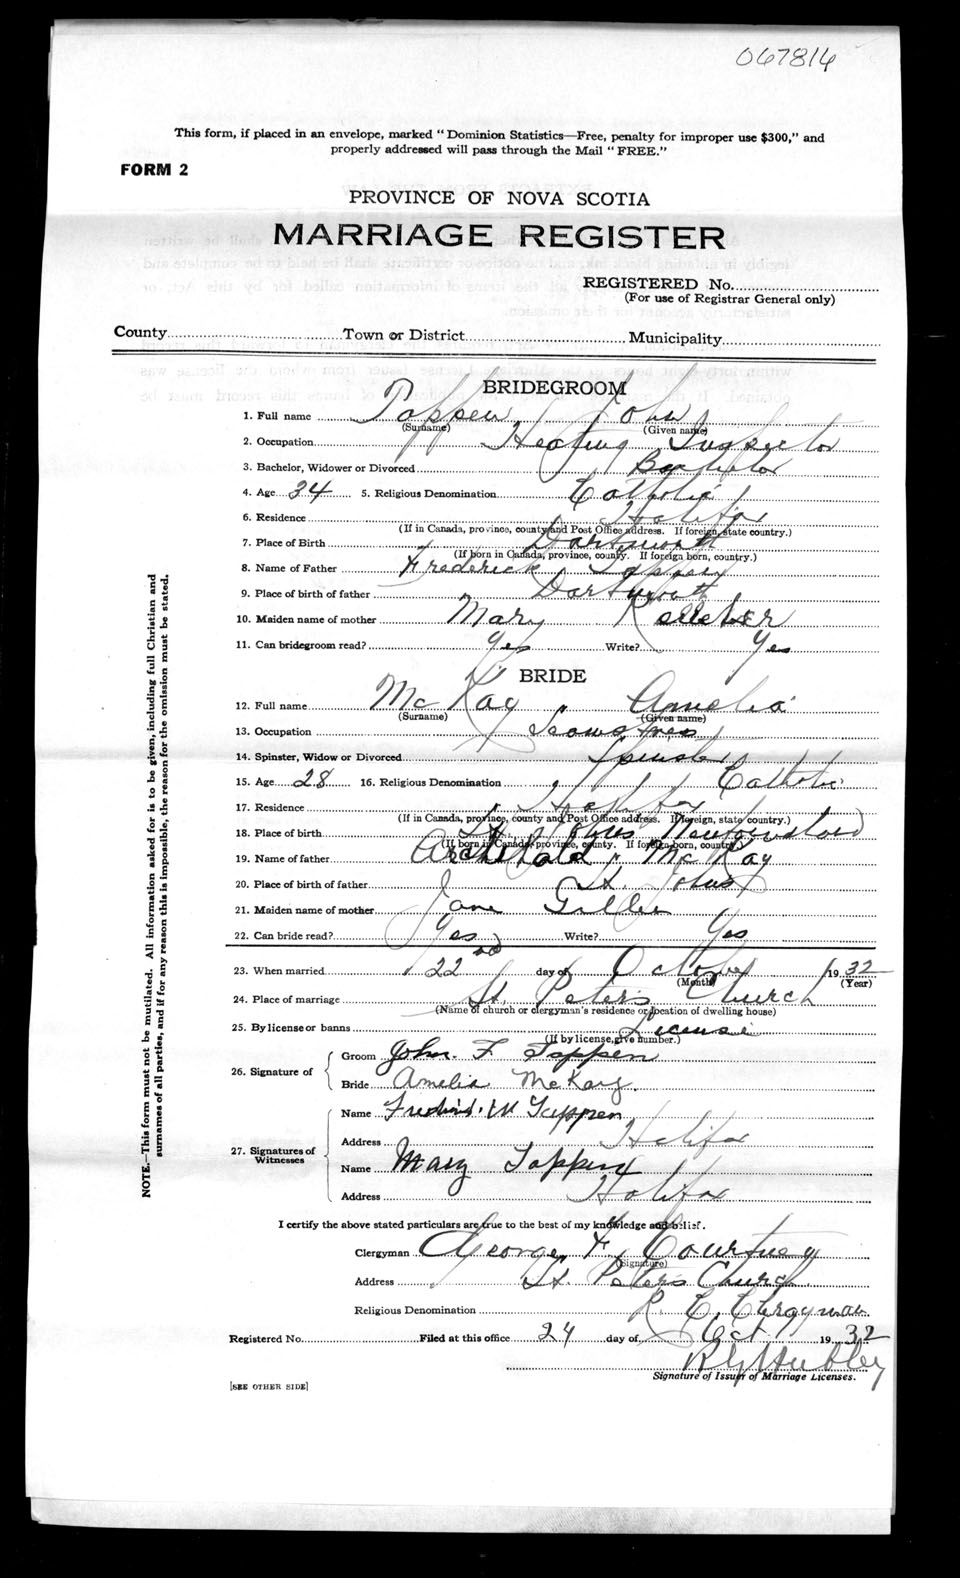 067816
This form, if placed in an envelope, marked "Dominion Statistics—Free, penalty for improper use $300," and
properly addressed will pass through the Mail "FREE."
FORM 2
PROVINCE OF NOVA SCOTIA
MARRIAGE REGISTER
REGISTERED No.
(For use of Registrar General only)
County Town or District Municipality
BRIDEGROOM
1. Full name Tappen John
(Surname) (Given name)
2. Occupation Heating Inspector
3. Bachelor, Widower or Divorced Bachelor
4. Age 34 5. Religious Denomination Catholic
6. Residence Halifax
(If in Canada, province, county and Post Office address. If foreign, state country.)
7. Place of Birth Dartmouth
(If born in Canada, province, county. If foreign born, country.)
8. Name of Father Frederick Tappen
9. Place of birth of father Dartmouth
10. Maiden name of mother Mary Kelleher
11. Can bridegroom read? Yes Write? Yes
BRIDE
12. Full name McKay Amelia
(Surname) (Given name)
13. Occupation Seamstress
14. Spinster, Widow or Divorced Spinster
15. Age 28 16. Religious Denomination Catholic
17. Residence Halifax
(If in Canada, province, county and Post Office address. If foreign, state country.)
18. Place of birth St. Johns Newfoundland
(If born in Canada, province, county. If foreign born, country.)
19. Name of father Archibald McKay
20. Place of birth of father St. Johns
21. Maiden name of mother Jane Gillis
22. Can bride read? Yes Write? Yes
23. When married 22nd day of October 1932
(Month) (Year)
24. Place of marriage St. Peter's Church
(Name of church or clergyman's residence or location of dwelling house)
25. By license or banns License
(If by license, give number.)
26. Signature of
Groom John. F Tappen
Bride Amelia McKay.
27. Signatures of Witnesses
Name Tappen
Address Halifax
Name Mary Tappen
Address Halifax
I certify the above stated particulars are true to the best of my knowledge and belief.
Clergyman George F. Courtney
(Signature)
Address St. Peters Church
Religious Denomination R. C. Clergyman
Registered No. Filed at this office 24 day of Oct 1932
Hubley
Signature of Issuer of Marriage Licenses.
[SEE OTHER SIDE]
NOTE.—This form must not be mutilated. All information asked for is to be given, including full Christian and
surnames of all parties, and if for any reason this is impossible, the reason for the omission must be stated.